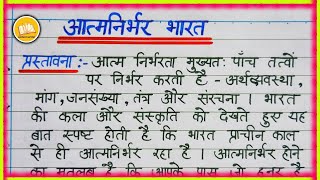 आत्मनिर्भर भारत
प्रस्तावना :- आत्म निर्भरता मुख्यतः पाँच तत्वों
पर निर्भर करती है - अर्थव्यवस्था,
मांग, जनसंख्या, तंत्र और संरचना । भारत
की कला और संस्कृति को देखते हुए यह
बात स्पष्ट होती है कि भारत प्राचीन काल
से ही आत्मनिर्भर रहा है । आत्मनिर्भर होने
का मतलब है कि आपके पास जो हुनर है